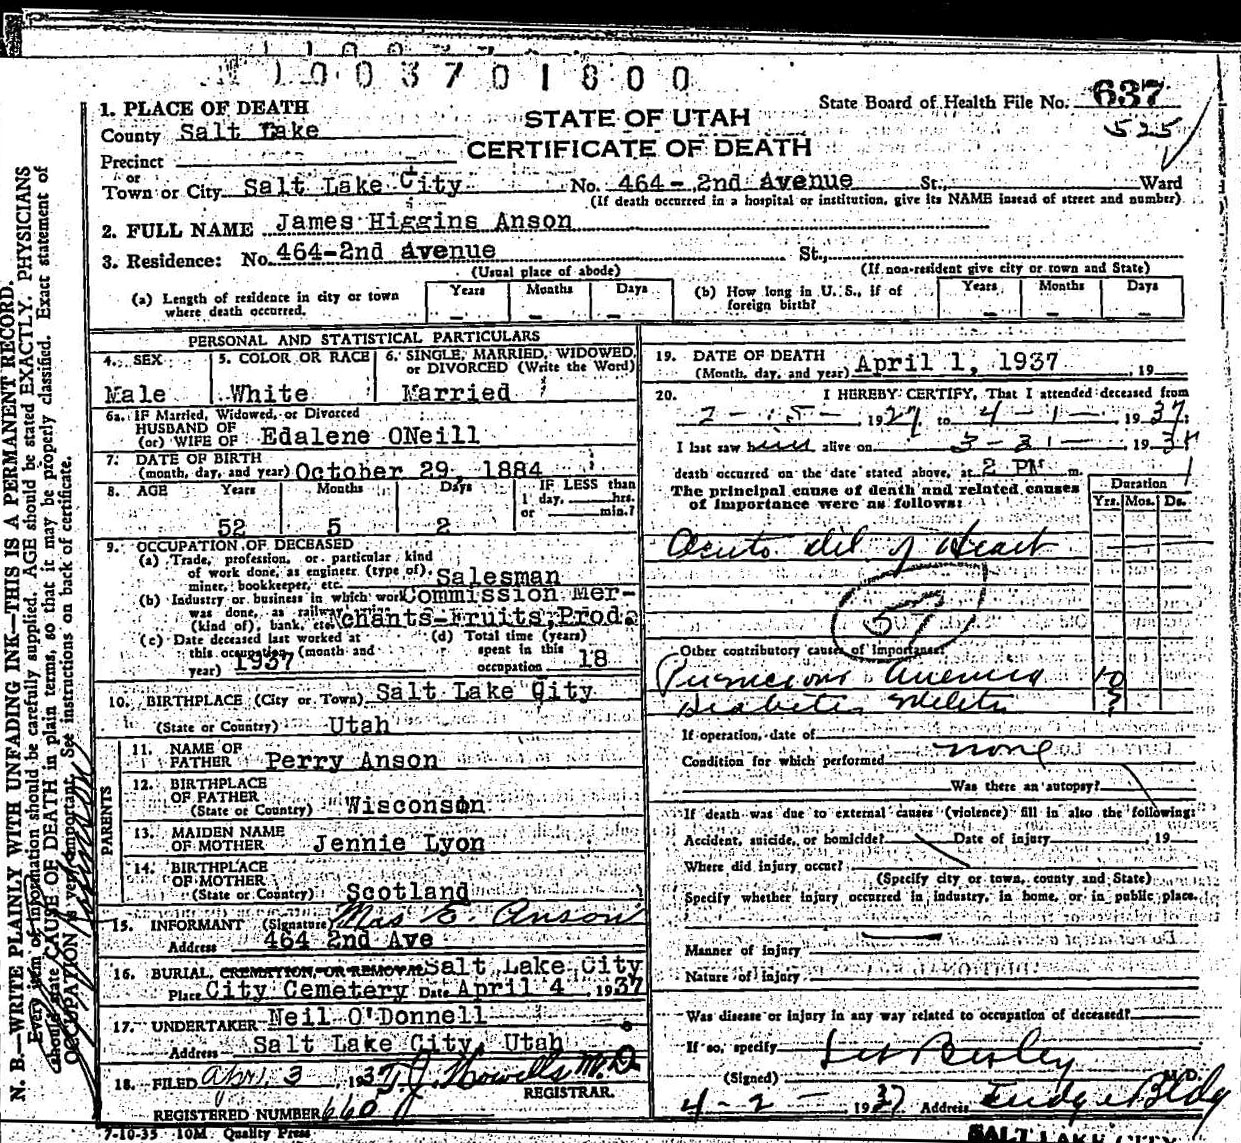 1003701800
1. PLACE OF DEATH
County Salt Lake
STATE OF UTAH
CERTIFICATE OF DEATH
State Board of Health File No. 637
525
Precinct
or
Town or City Salt Lake City No. 464 - 2nd Avenue St., Ward
(If death occurred in a hospital or institution, give its NAME instead of street and number)
2. FULL NAME James Higgins Anson
3. Residence: No. 464-2nd Avenue St.,
(Usual place of abode) (If non-resident give city or town and State)
(a) Length of residence in city or town where death occurred. Years Months Days
(b) How long in U. S., if of foreign birth? Years Months Days
PERSONAL AND STATISTICAL PARTICULARS
4. SEX Male
5. COLOR OR RACE White
6. SINGLE, MARRIED, WIDOWED, or DIVORCED (Write the Word) Married
6a. IF Married, Widowed, or Divorced
HUSBAND OF
(or) WIFE OF Edalene ONeill
7. DATE OF BIRTH
(month, day, and year) October 29, 1884
8. AGE Years Months Days IF LESS than
1 day, hrs.
or min.?
52 5 2
9. OCCUPATION OF DECEASED
(a) Trade, profession, or particular kind
of work done, as engineer (type of),
miner, bookkeeper, etc. Salesman
(b) Industry or business in which work Commission Mer-
was done, as railway
(kind of), bank, etc. chants-Fruits, Prod.
(c) Date deceased last worked at
this occupation (month and
year) 1937
(d) Total time (years)
spent in this
occupation 18
10. BIRTHPLACE (City or Town) Salt Lake City
(State or Country) Utah
PARENTS
11. NAME OF
FATHER Perry Anson
12. BIRTHPLACE
OF FATHER
(State or Country) Wisconson
13. MAIDEN NAME
OF MOTHER Jennie Lyon
14. BIRTHPLACE
OF MOTHER
(State or Country) Scotland
15. INFORMANT (Signature) Mrs E. Anson
Address 464 2nd Ave
16. BURIAL, CREMATION, OR REMOVAL Salt Lake City
Place City Cemetery Date April 4, 1937
17. UNDERTAKER Neil O'Donnell
Address Salt Lake City, Utah
18. FILED Apr. 3 1937 T. J. Howells M.D.
REGISTRAR.
REGISTERED NUMBER 660
7-10-35 10M Quality Press
19. DATE OF DEATH
(Month, day, and year) April 1, 1937, 19
20. I HEREBY CERTIFY, That I attended deceased from
2-15- 1927 to 4-1- 1937
I last saw him alive on 3-31- 1937
death occurred on the date stated above, at 2 PM m.
The principal cause of death and related causes
of importance were as follows:
Duration
Yrs. Mos. Ds.
Acute dil of Heart
Other contributory causes of importance:
Pernicious Anemia 10
Diabetis Melitis ?
If operation, date of
Condition for which performed none
Was there an autopsy?
If death was due to external causes (violence) fill in also the following:
Accident, suicide, or homicide? Date of injury 19
Where did injury occur?
(Specify city or town, county and State)
Specify whether injury occurred in industry, in home, or in public place.
Manner of injury
Nature of injury
Was disease or injury in any way related to occupation of deceased?
If so, specify
(Signed) M.D.
4-2- 1937 Address Judge Bldg
SALT LAKE CITY
N. B.—WRITE PLAINLY WITH UNFADING INK—THIS IS A PERMANENT RECORD.
Every item of information should be carefully supplied. AGE should be stated EXACTLY. PHYSICIANS
should state CAUSE OF DEATH in plain terms, so that it may be properly classified. Exact statement of
OCCUPATION is very important. See instructions on back of certificate.